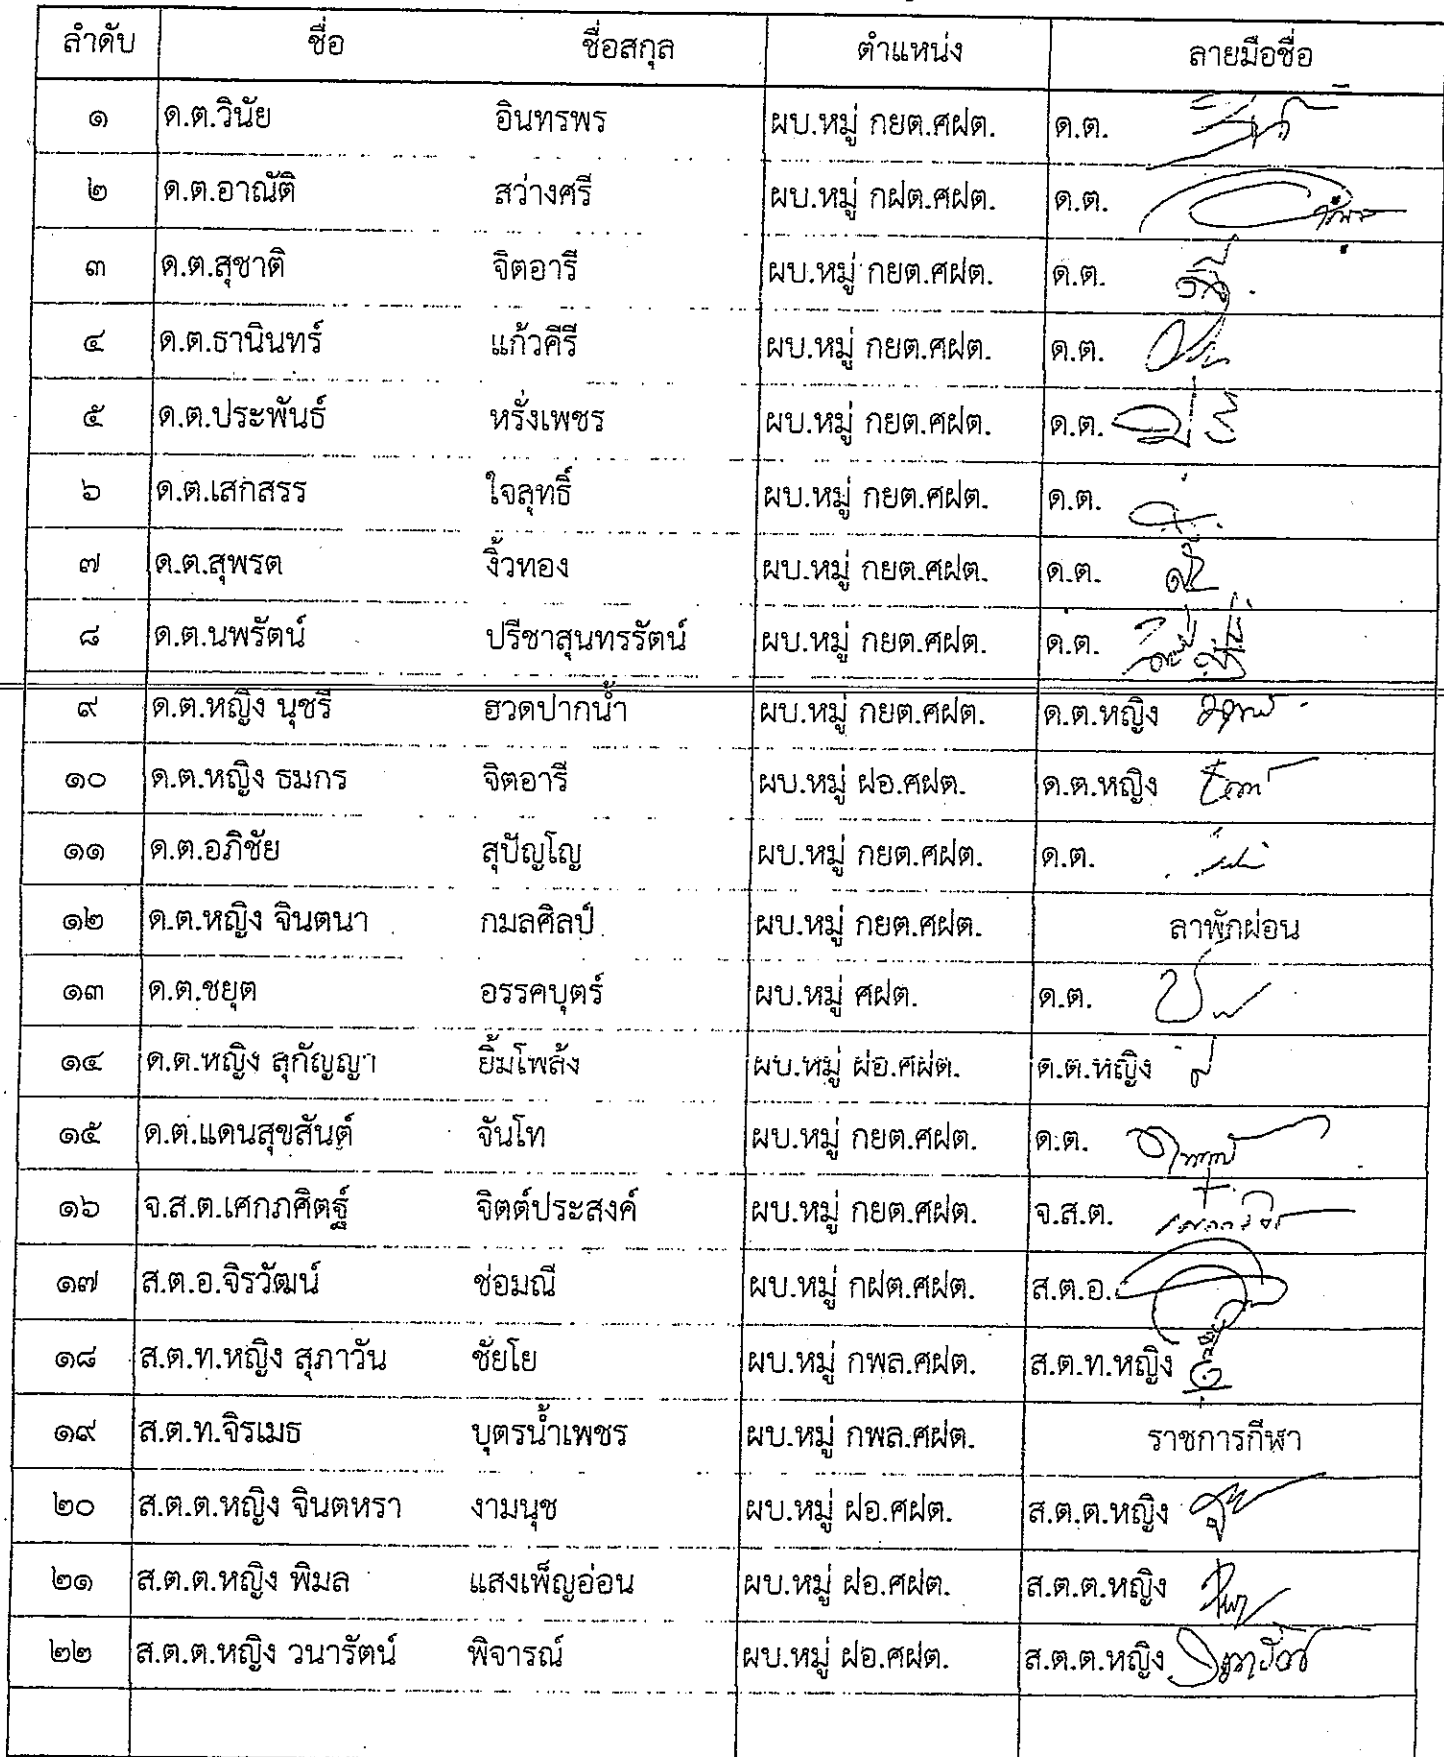 ลำดับ ชื่อ ชื่อสกุล ตำแหน่ง ลายมือชื่อ
๑ ด.ต.วินัย อินทรพร ผบ.หมู่ กยต.ศฝต. ด.ต.
๒ ด.ต.อาณัติ สว่างศรี ผบ.หมู่ กฝต.ศฝต. ด.ต.
๓ ด.ต.สุชาติ จิตอารี ผบ.หมู่ กยต.ศฝต. ด.ต.
๔ ด.ต.ธานินทร์ แก้วคีรี ผบ.หมู่ กยต.ศฝต. ด.ต.
๕ ด.ต.ประพันธ์ หรั่งเพชร ผบ.หมู่ กยต.ศฝต. ด.ต.
๖ ด.ต.เสกสรร ใจลุทธิ์ ผบ.หมู่ กยต.ศฝต. ด.ต.
๗ ด.ต.สุพรต งิ้วทอง ผบ.หมู่ กยต.ศฝต. ด.ต.
๘ ด.ต.นพรัตน์ ปรีชาสุนทรรัตน์ ผบ.หมู่ กยต.ศฝต. ด.ต.
๙ ด.ต.หญิง นุชรี ฮวดปากน้ำ ผบ.หมู่ กยต.ศฝต. ด.ต.หญิง
๑๐ ด.ต.หญิง ธมกร จิตอารี ผบ.หมู่ ฝอ.ศฝต. ด.ต.หญิง
๑๑ ด.ต.อภิชัย สุปัญโญ ผบ.หมู่ กยต.ศฝต. ด.ต.
๑๒ ด.ต.หญิง จินตนา กมลศิลป์ ผบ.หมู่ กยต.ศฝต. ลาพักผ่อน
๑๓ ด.ต.ชยุต อรรคบุตร์ ผบ.หมู่ ศฝต. ด.ต.
๑๔ ด.ต.หญิง สุกัญญา ยิ้มโพลัง ผบ.หมู่ ฝอ.ศฝต. ด.ต.หญิง
๑๕ ด.ต.แดนสุขสันต์ จันโท ผบ.หมู่ กยต.ศฝต. ด.ต.
๑๖ จ.ส.ต.เศกภศิตฐ์ จิตต์ประสงค์ ผบ.หมู่ กยต.ศฝต. จ.ส.ต.
๑๗ ส.ต.อ.จิรวัฒน์ ช่อมณี ผบ.หมู่ กฝต.ศฝต. ส.ต.อ.
๑๘ ส.ต.ท.หญิง สุภาวัน ชัยโย ผบ.หมู่ กพล.ศฝต. ส.ต.ท.หญิง
๑๙ ส.ต.ท.จิรเมธ บุตรน้ำเพชร ผบ.หมู่ กพล.ศฝต. ราชการกีฬา
๒๐ ส.ต.ต.หญิง จินตหรา งามนุช ผบ.หมู่ ฝอ.ศฝต. ส.ต.ต.หญิง
๒๑ ส.ต.ต.หญิง พิมล แสงเพ็ญอ่อน ผบ.หมู่ ฝอ.ศฝต. ส.ต.ต.หญิง
๒๒ ส.ต.ต.หญิง วนารัตน์ พิจารณ์ ผบ.หมู่ ฝอ.ศฝต. ส.ต.ต.หญิง